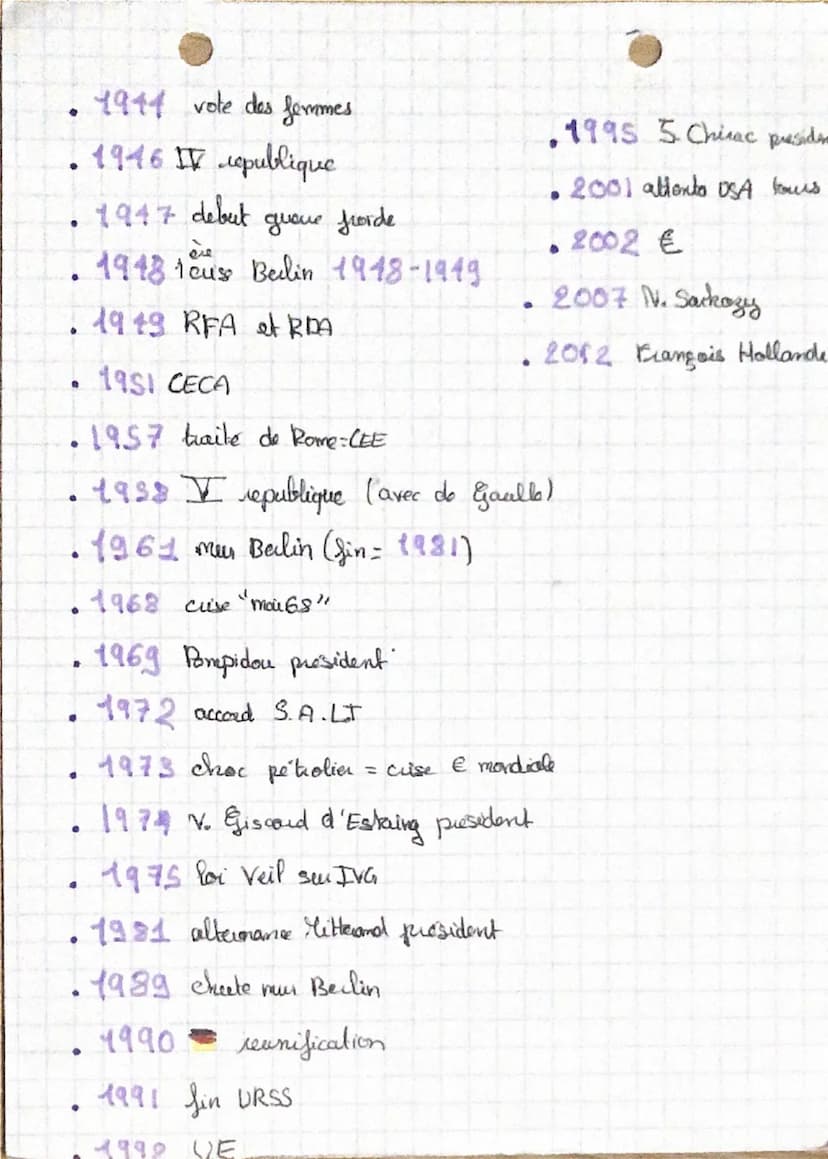 • 1944 vote des femmes
• 1946 IV republique
• 1947 debut guerre froide
• 1948 1ère crise Berlin 1948-1949
• 1949 RFA et RDA
• 1951 CECA
• 1957 traité de Rome=CEE
• 1958 V republique (avec de Gaulle)
• 1961 mur Berlin (fin = 1981)
• 1968 crise "mai 68"
• 1969 Pompidou président
• 1972 accord S.A.LT
• 1973 choc pétrolier = crise € mondiale
• 1974 V. Giscard d'Estaing président
• 1975 loi Veil sur IVG
• 1981 alternance Mitterand président
• 1989 chute mur Berlin
• 1990 reunification
• 1991 fin URSS
• 1992 UE
• 1995 J. Chirac présiden
• 2001 attenta USA tours
• 2002 €
• 2007 N. Sarkozy
• 2012 François Hollande